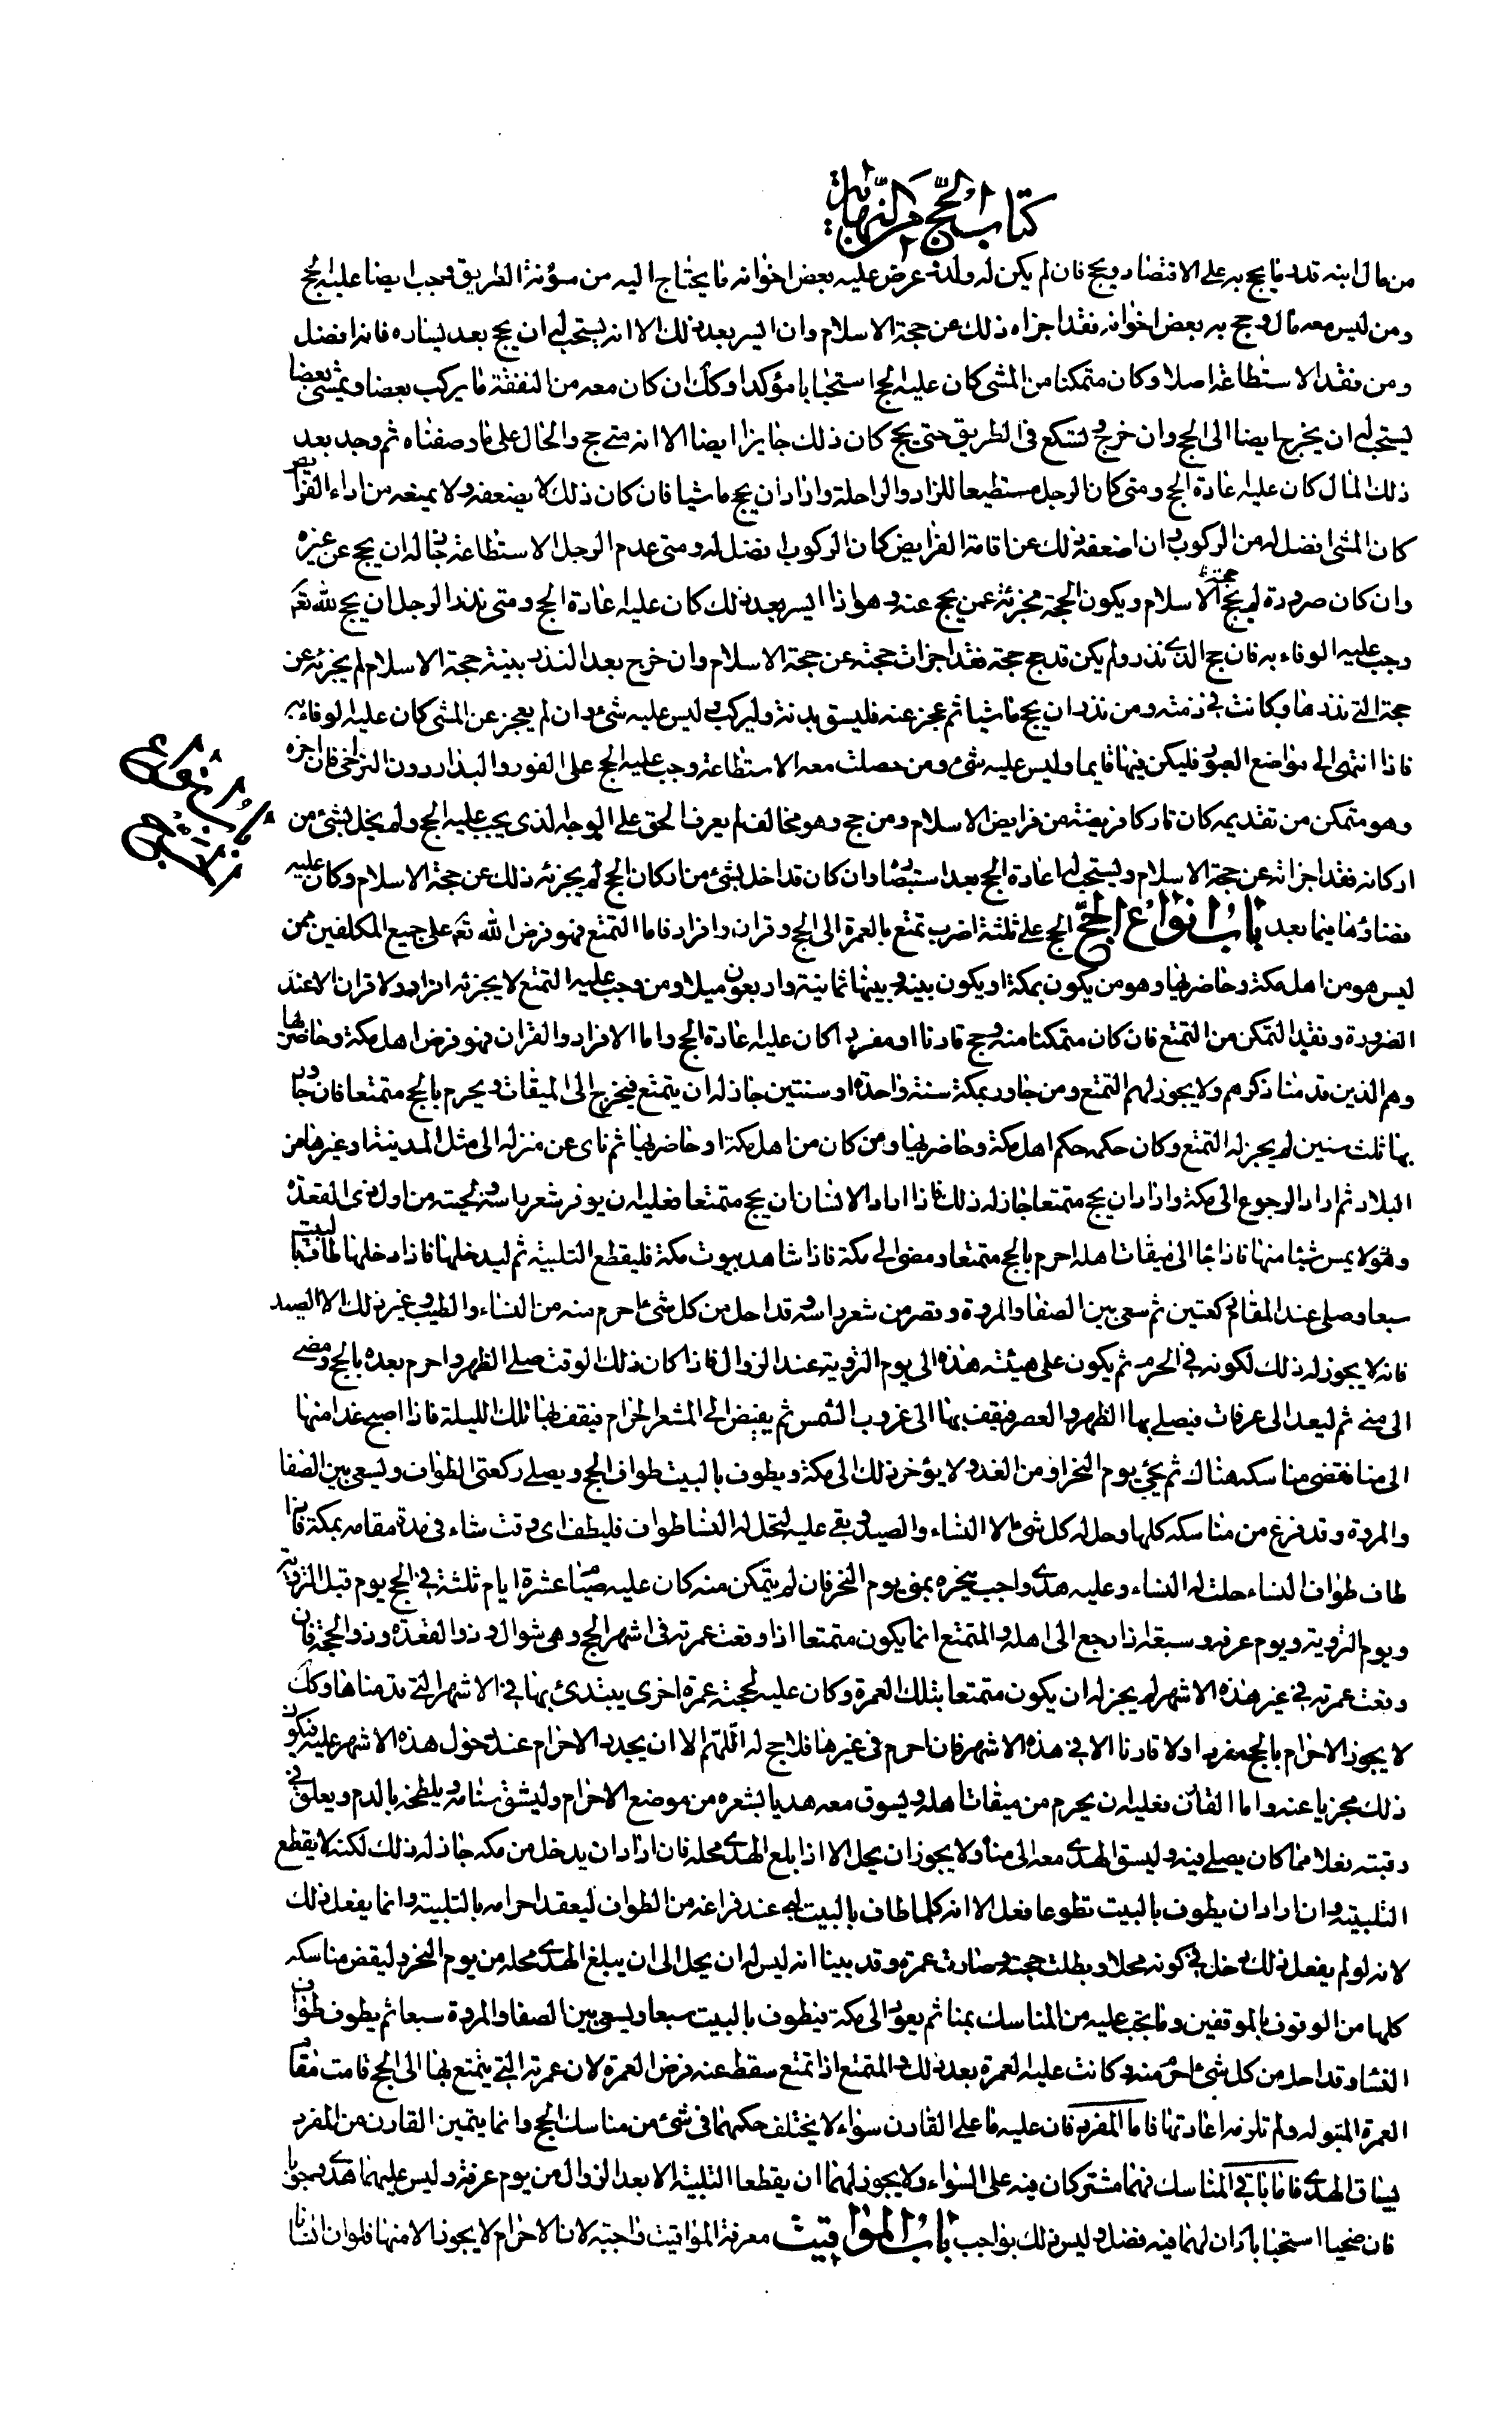 كتاب الحج من النهاية
من مال ابنه قدر ما يحج به على الاقتصاد ويحج فان لم يكن له ولد و عرض عليه بعض اخوانه ما يحتاج اليه من مؤنة الطريق وجب ايضا عليه الحج
ومن ليس معه مال وحج به بعض اخوانه فقد اجزاه ذلك عن حجة الاسلام وان ايسر بعد ذلك الا انه يستحب له ان يحج بعد يساره فانه افضل
ومن فقد الاستطاعة اصلا وكان متمكنا من المشى كان عليه الحج استحبابا مؤكدا وكك ان كان معه من النفقة ما يركب بعضا ويمشى بعضا
يستحب له ان يخرج ايضا الى الحج وان خرج وتسكع فى الطريق حتى يحج كان ذلك جايزا ايضا الا انه متى حج والحال على ما وصفناه ثم وجد بعد
ذلك المال كان عليه اعادة الحج ومتى كان الرجل مستطيعا للزاد والراحلة واراد ان يحج ماشيا فان كان ذلك لا يضعفه ولا يمنعه من اداء الفرايض
كان المشى افضل له من الركوب وان اضعفه ذلك عن اقامة الفرايض كان الركوب افضل له ومتى عدم الرجل الاستطاعة جاز له ان يحج عن غيره
وان كان صرورة لم يحج حجة الاسلام ويكون الحجة مجزئة عمن يحج عنه وهو اذا ايسر بعد ذلك كان عليه اعادة الحج ومتى نذر الرجل ان يحج لله تعم
وجب عليه الوفاء به فان حج الذى نذر ولم يكن قد حج حجة فقد اجزات حجته عن حجة الاسلام وان خرج بعد النذر بنية حجة الاسلام لم يجزئه عن
حجة التى نذرها وكانت فى ذمته ومن نذر ان يحج ماشيا ثم عجز عنه فليسق بدنة وليركب وليس عليه شئ وان لم يعجز عن المشى كان عليه الوفاء به
فاذا انتهى الى مواضع العبور فليكن فيها قايما وليس عليه شئ ومن حصلت معه الاستطاعة وجب عليه الحج على الفور والبدار دون التراخى فان اخره
وهو متمكن من تقديمه كان تاركا فريضة من فرايض الاسلام ومن حج وهو مخالف لم يعرف الحق على الوجه الذى يجب عليه الحج ولم يخل بشئ من
اركانه فقد اجزاته عن حجة الاسلام ويستحب له اعادة الحج بعد استبصاره وان كان قد اخل بشئ من اركان الحج لم يجزئه ذلك عن حجة الاسلام وكان عليه
قضاؤها فيما بعد باب انواع الحج الحج على ثلثة اضرب تمتع بالعمرة الى الحج وقران وافراد فاما التمتع فهو فرض الله تعم على جميع المكلفين ممن
ليس هو من اهل مكة وحاضريها وهو من يكون بمكة او يكون بينه وبينها ثمانية واربعون ميلا ومن وجب عليه التمتع لا يجزئه افراد ولا قران الا عند
الضرورة وفقد التمكن من التمتع فان كان متمكنا منه وحج قارنا او مفردا كان عليه اعادة الحج واما الافراد والقران فهو فرض اهل مكة وحاضريها
وهم الذين قدمنا ذكرهم ولا يجوز لهم التمتع ومن جاور بمكة سنة واحدة او سنتين جاز له ان يتمتع فيخرج الى الميقات ويحرم بالحج متمتعا فان جاور
بها ثلث سنين لم يجز له التمتع وكان حكمه حكم اهل مكة وحاضريها ومن كان من اهل مكة او حاضريها ثم ناى عن منزله الى مثل المدينة او غيرها من
البلاد ثم اراد الرجوع الى مكة واراد ان يحج متمتعا جاز له ذلك فاذا اراد الانسان ان يحج متمتعا فعليه ان يوفر شعر راسه ولحيته من اول ذى القعدة
وهو لا يمس شيئا منها فاذا جا الى ميقات اهله احرم بالحج متمتعا ومضى الى مكة فاذا شاهد بيوت مكة فليقطع التلبية ثم ليدخلها فاذا دخلها طاف بالبيت
سبعا وصلى عند المقام ركعتين ثم سعى بين الصفا والمروة وقصر من شعر راسه وقد احل من كل شئ احرم منه من النساء والطيب وغير ذلك الا الصيد
فانه لا يجوز له ذلك لكونه فى الحرم ثم يكون على هيئته هذه الى يوم التروية عند الزوال فاذا كان ذلك الوقت صلى الظهر واحرم بعده بالحج ومضى
الى منى ثم ليغد الى عرفات فيصلى بها الظهر والعصر فيقف بها الى غروب الشمس ثم يفيض الى المشعر الحرام فيقف بها تلك الليلة فاذا اصبح غدا منها
الى منا فقضى مناسكه هناك ثم يجئ يوم النحر او من الغد ولا يؤخر ذلك الى مكة ويطوف بالبيت طواف الحج ويصلى ركعتى الطواف ويسعى بين الصفا
والمروة وقد فرغ من مناسكه كلها وحل له كل شئ الا النساء والصيد وبقى عليه لتحل له النسا طواف فليطف اى وقت شاء فى مدة مقامه بمكة فاذا
طاف طواف النساء حلت له النساء وعليه هدى واجب ينحره بمنى يوم النحر فان لم يتمكن منه كان عليه صيام عشرة ايام ثلثة فى الحج يوم قبل التروية
ويوم التروية ويوم عرفة وسبعة اذا رجع الى اهله والمتمتع انما يكون متمتعا اذا وقعت عمرته فى اشهر الحج وهى شوال وذو القعدة وذو الحجة فان
وقعت عمرته فى غير هذه الاشهر لم يجز له ان يكون متمتعا بتلك العمرة وكان عليه لحجته عمرة اخرى يبتدئ بها فى الاشهر التى قدمناها وكك
لا يجوز الاحرام بالحج مفردا ولا قارنا الا فى هذه الاشهر فان احرم فى غيرها فلا حج له اللهم الا ان يجدد الاحرام عند دخول هذه الاشهر عليه فيكون
ذلك مجزيا عنه واما القارن فعليه ان يحرم من ميقات اهله ويسوق معه هديا يشعره من موضع الاحرام وليشق سنامه ويلطخه بالدم ويعلق فى
رقبته نعلا مما كان يصلى فيه وليسق الهدى معه الى منا ولا يجوز ان يحل الا اذا بلغ الهدى محله فان اراد ان يدخل من مكه جاز له ذلك لكنه لا يقطع
التلبية وان اراد ان يطوف بالبيت تطوعا فعل الا انه كلما طاف بالبيت لبى عند فراغه من الطواف ليعقد احرامه بالتلبية وانما يفعل ذلك
لانه لو لم يفعل ذلك دخل فى كونه محلا وبطلت حجته وصارت عمرة وقد بينا انه ليس له ان يحل الى ان يبلغ الهدى محله من يوم النحر وليقض مناسكه
كلها من الوقوف بالموقفين وما يجب عليه من المناسك بمنا ثم يعود الى مكة فيطوف بالبيت سبعا ويسعى بين الصفا والمروة سبعا ثم يطوف طواف
النسا وقد احل من كل شئ احرم منه وكانت عليه العمرة بعد ذلك والمتمتع اذا تمتع سقط عنه فرض العمرة لان عمرته التى يتمتع بها الى الحج قامت مقام
العمرة المبتولة ولم تلزمه اعادتها فاما المفرد فان عليه ما على القارن سواء لا يختلف حكمهما فى شئ من مناسك الحج وانما يتميز القارن من المفرد
بسياق الهدى فاما باقى المناسك فهما مشتركان فيه على السواء ولا يجوز لهما ان يقطعا التلبية الا بعد الزوال من يوم عرفة وليس عليهما هدى وجوبا
فان ضحيا استحبابا كان لهما فيه فضل وليس ذلك بواجب باب المواقيت معرفة المواقيت واجبة لان الاحرام لا يجوز الا منها فلو ان انسانا